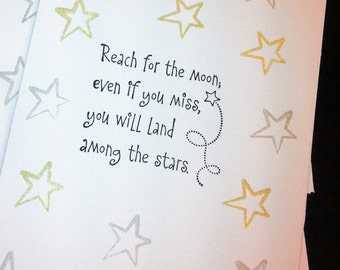 Reach for the moon;
even if you miss,
you will land
among the stars.